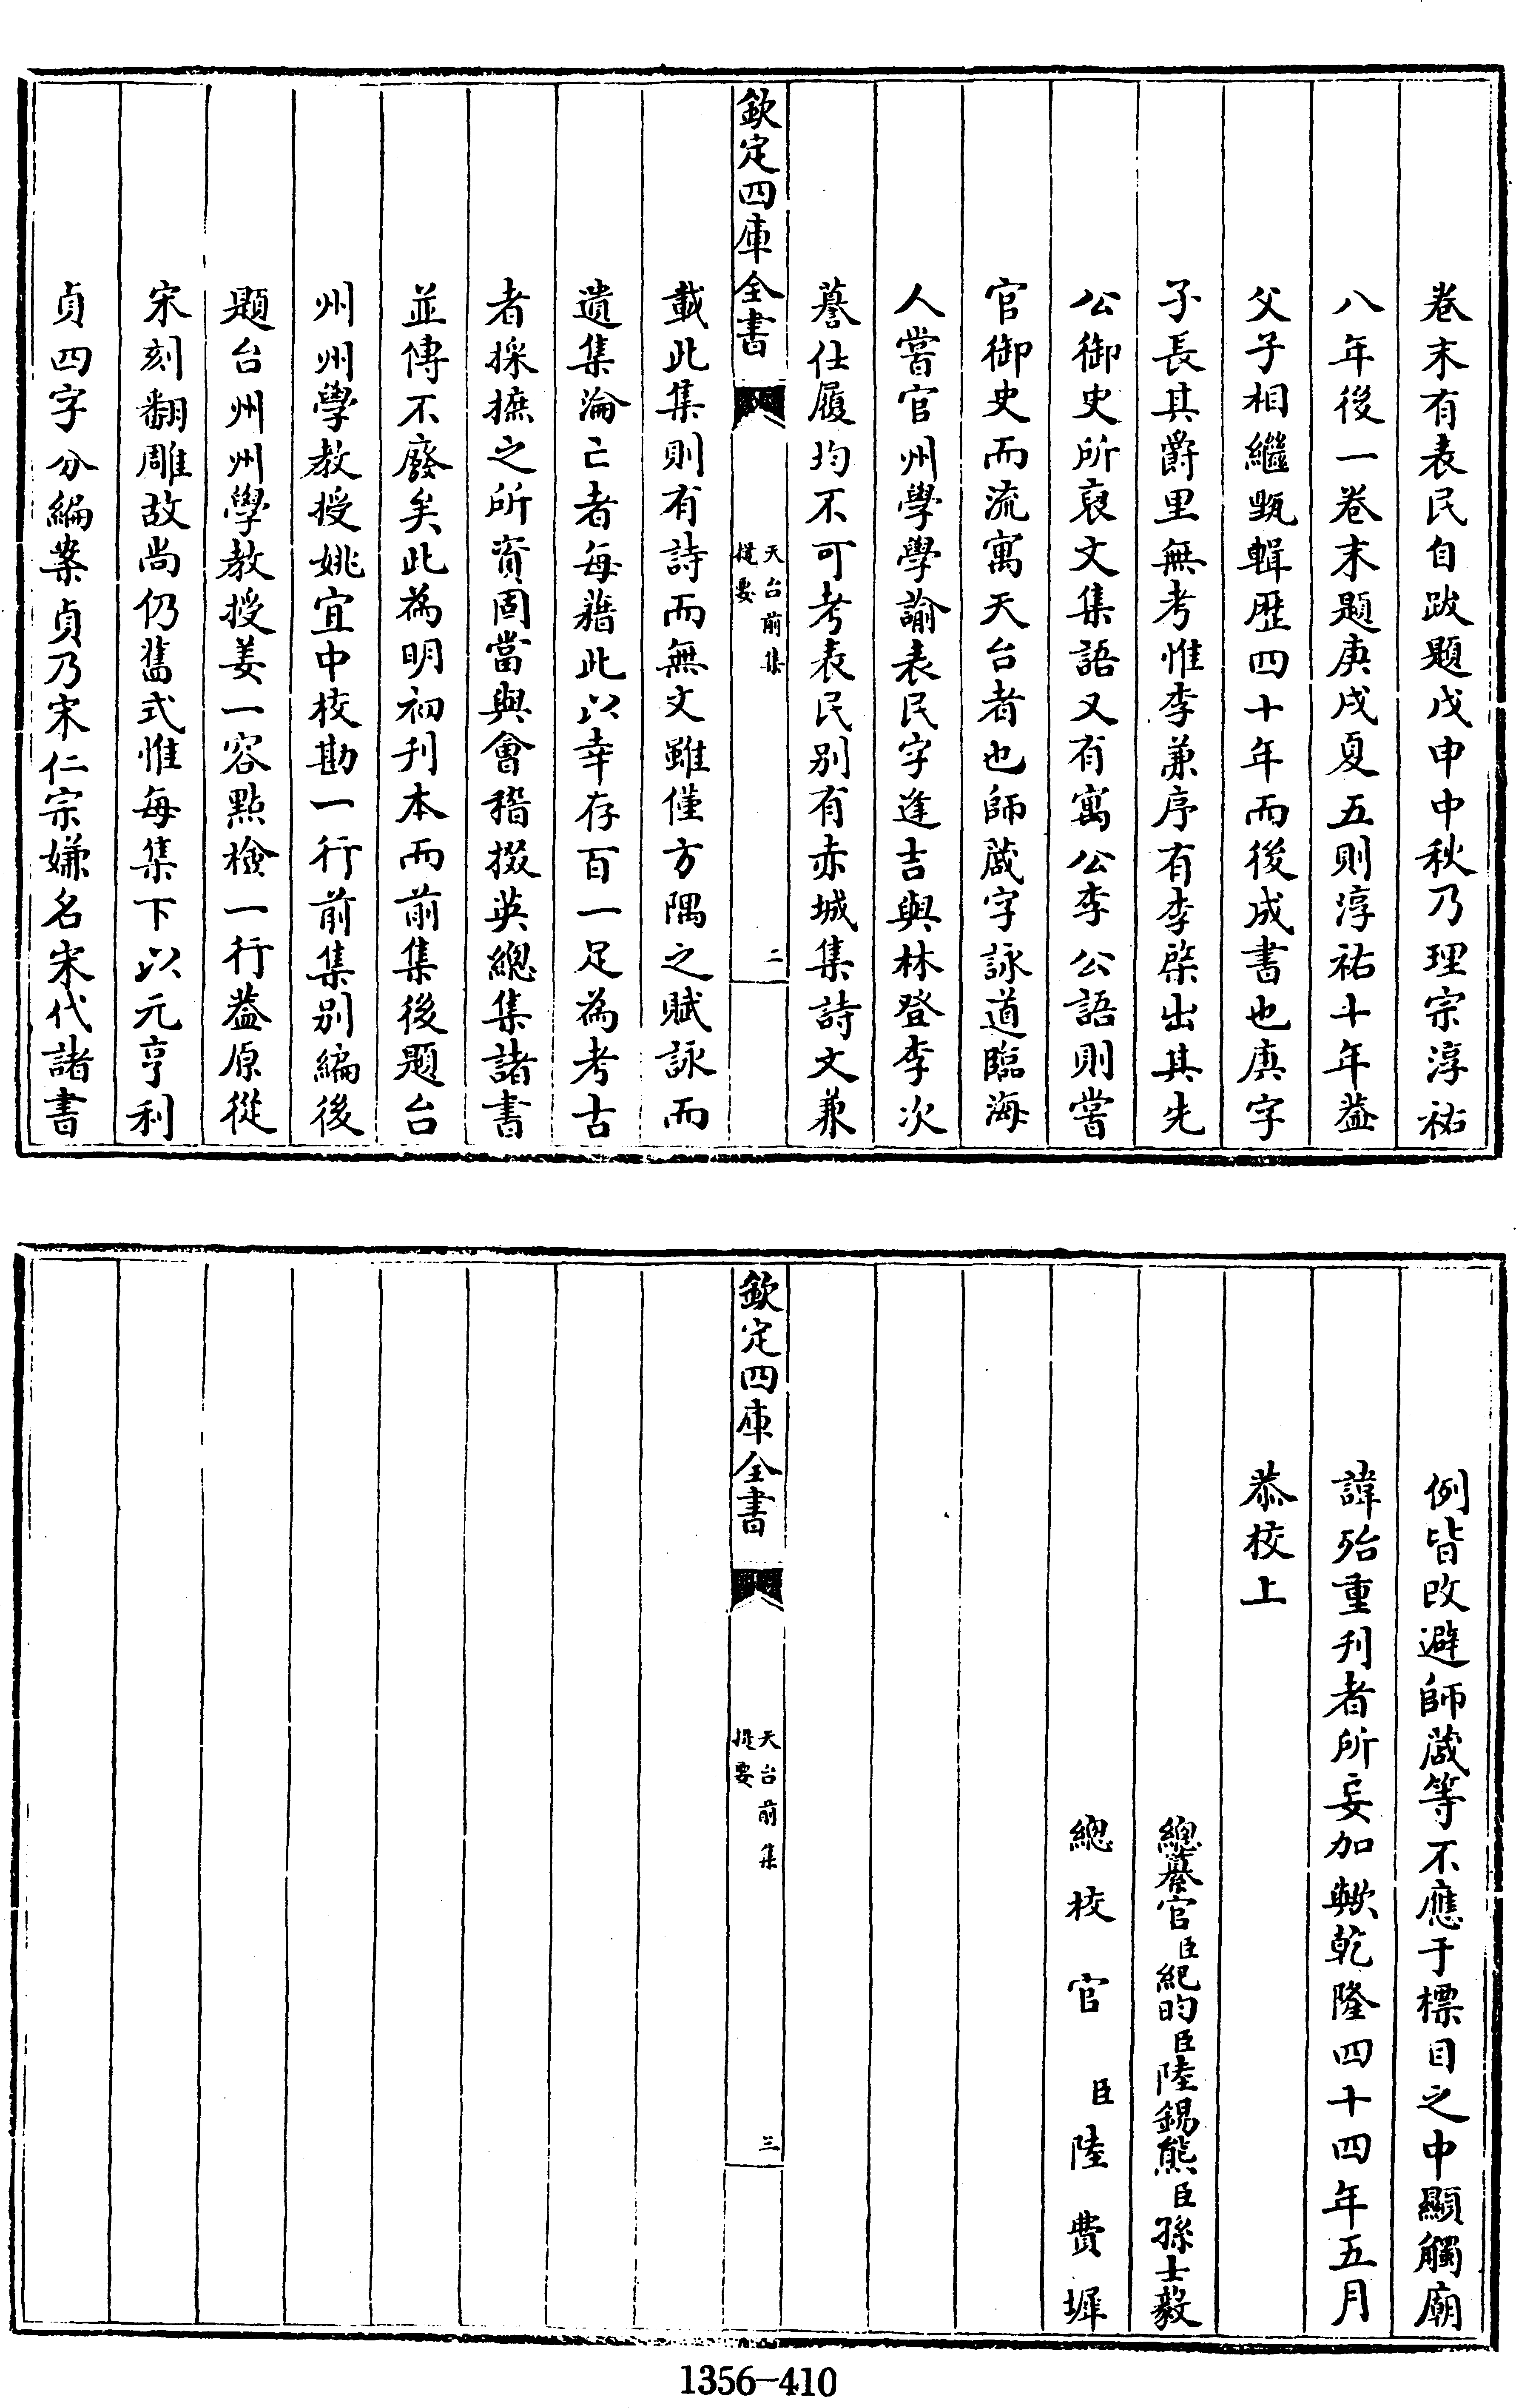 卷末有表民自跋題戊申中秋乃理宗淳祐
八年後一卷末題庚戌夏五則淳祐十年蓋
父子相繼甄輯歴四十年而後成書也庚字
子長其爵里無考惟李兼序有李棨出其先
公御史所裒文集語又有寓公李公語則嘗
官御史而流寓天台者也師蒧字詠道臨海
人嘗官州學學諭表民字逢吉與林登李次
謩仕履均不可考表民别有赤城集詩文兼
欽定四庫全書
天台前集
提要
二
載此集則有詩而無文雖僅方隅之賦詠而
遺集淪亡者每藉此以幸存百一足為考古
者採摭之所資固當與會稽掇英總集諸書
並傳不廢矣此為明初刊本而前集後題台
州州學教授姚宜中校勘一行前集别編後
題台州州學教授姜一容點檢一行蓋原從
宋刻翻雕故尚仍舊式惟每集下以元亨利
貞四字分編案貞乃宋仁宗嫌名宋代諸書
例皆改避師蒧等不應于標目之中顯觸廟
諱殆重刋者所妄加歟乾隆四十四年五月
恭校上
總纂官臣紀昀臣陸錫熊臣孫士毅
總校官臣陸費墀
欽定四庫全書
天台前集
提要
三
1356-410